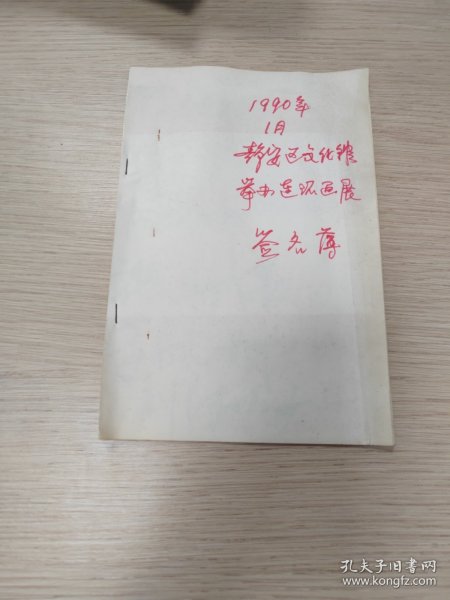 1990年
1月
静安区文化馆
举办连环画展
签名薄
孔夫子旧书网
www.kongfz.com